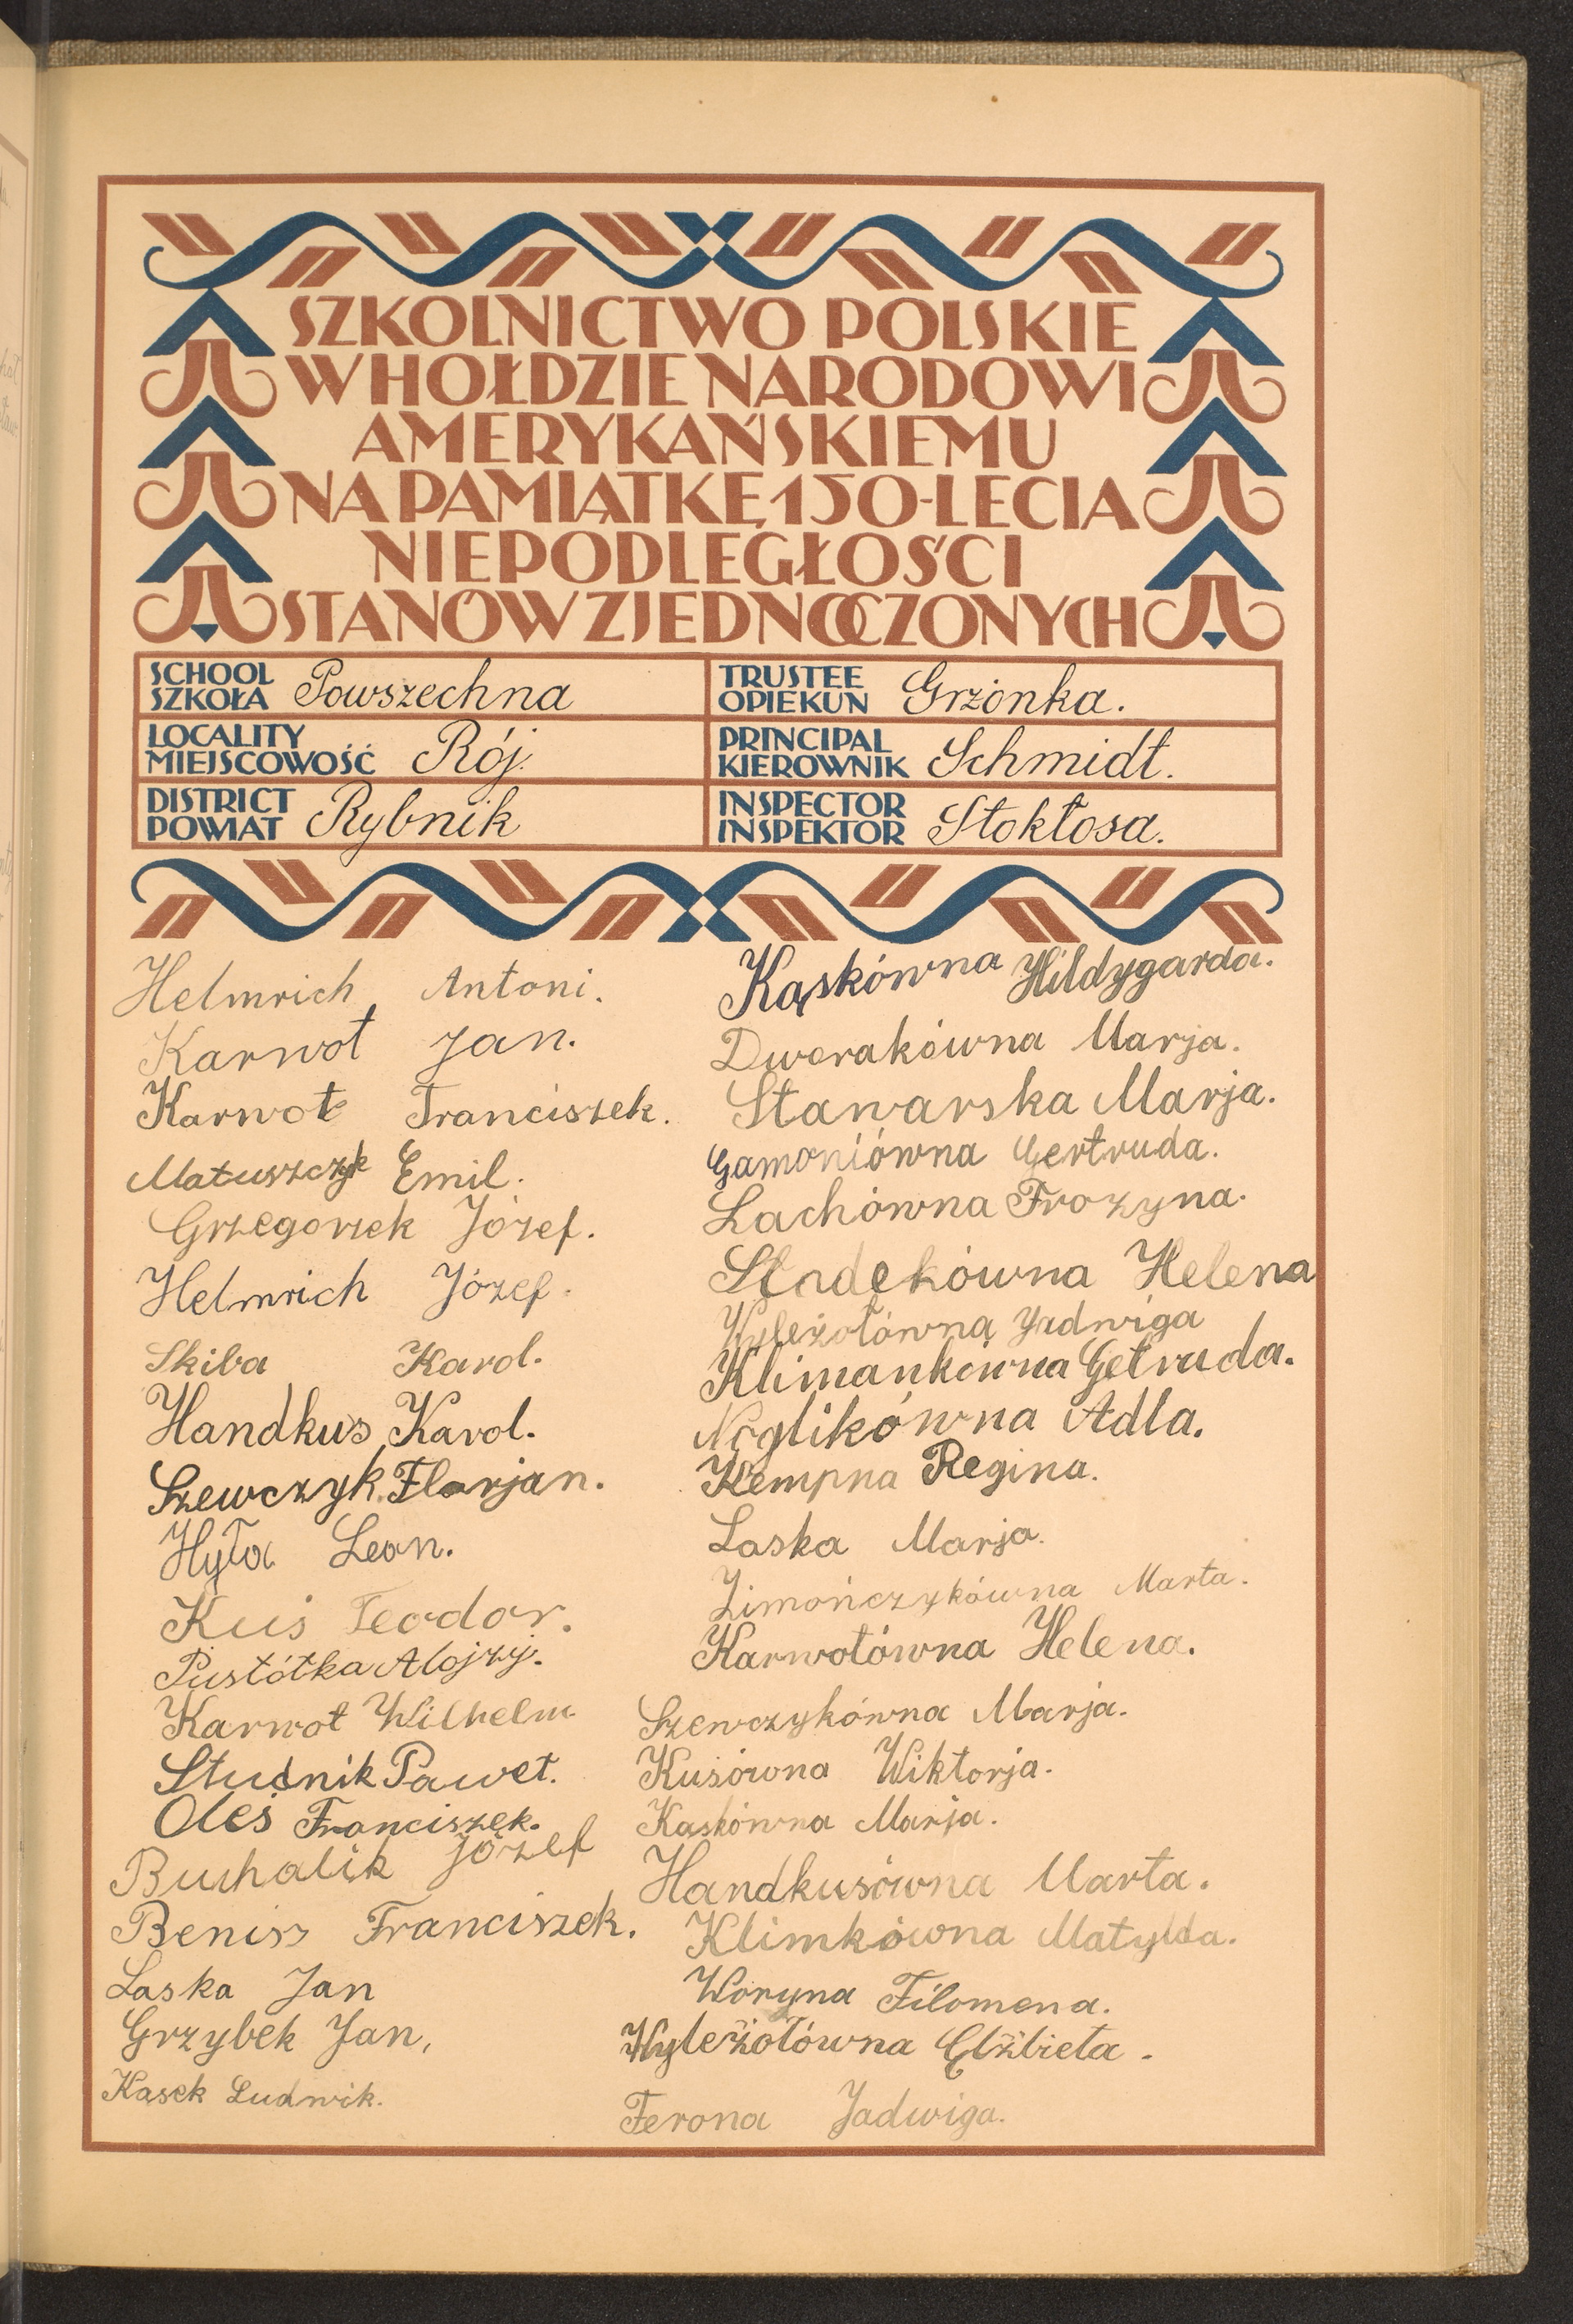 SZKOLNICTWO POLSKIE
W HOŁDZIE NARODOWI
AMERYKAŃSKIEMU
NA PAMIĄTKĘ 150-LECIA
NIEPODLEGŁOŚCI
STANÓW ZJEDNOCZONYCH
SCHOOL
SZKOŁA Powszechna
LOCALITY
MIEJSCOWOŚĆ Rój.
DISTRICT
POWIAT Rybnik
TRUSTEE
OPIEKUN Grzonka.
PRINCIPAL
KIEROWNIK Schmidt.
INSPECTOR
INSPEKTOR Stokłosa.
Helmrich Antoni.
Karwot Jan.
Karwot Franciszek.
Matuszczyk Emil.
Grzegorzek Józef.
Helmrich Józef.
Skiba Karol.
Handkus Karol.
Szewczyk Florjan.
Hyła Leon.
Kuś Teodor.
Pustółka Alojzy.
Karwot Wilhelm
Studnik Paweł.
Oleś Franciszek.
Buchalik Józef
Benisz Franciszek.
Laska Jan
Grzybek Jan,
Kąsek Ludwik.
Kąskówna Hildygarda.
Dworakówna Marja.
Stawarska Marja.
Gamoniówna Gertruda.
Lachówna Frozyna.
Sladekówna Helena
Wyleżołówna Jadwiga
Klimankówna Getruda.
Noglikówna Adla.
Kempna Regina.
Laska Marja.
Zimończykówna Marta.
Karwotówna Helena.
Szewczykówna Marja.
Kusiówna Wiktorja.
Kaskówna Marja.
Handkusówna Marta.
Klimkówna Matylda.
Woryna Filomena.
Wyleżołówna Elżbieta.
Ferona Jadwiga.